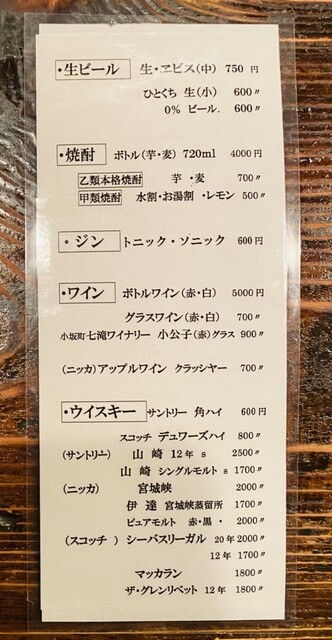 ・生ビール 生・ヱビス(中) 750 円
ひとくち 生(小) 600〃
0% ビール. 600〃
・焼酎 ボトル(芋・麦) 720ml 4000円
乙類本格焼酎 芋 ・麦 700〃
甲類焼酎 水割・お湯割 ・レモン 500〃
・ジン トニック・ソニック 600円
・ワイン ボトルワイン(赤・白) 5000円
グラスワイン(赤・白) 700〃
小坂町七滝ワイナリー 小公子(赤)グラス 900〃
(ニッカ)アップルワイン クラッシャー 700〃
・ウイスキー サントリー 角ハイ 600円
スコッチ デュワーズハイ 800〃
(サントリー) 山崎 12年 s 2500〃
山崎 シングルモルト s 1700〃
(ニッカ) 宮城峡 2000〃
伊達 宮城峡蒸留所 1700〃
ピュアモルト 赤・黒・ 2000〃
(スコッチ ) シーバスリーガル 20年2000〃
12年 1700〃
マッカラン 1800〃
ザ・グレンリベット 12年 1800〃